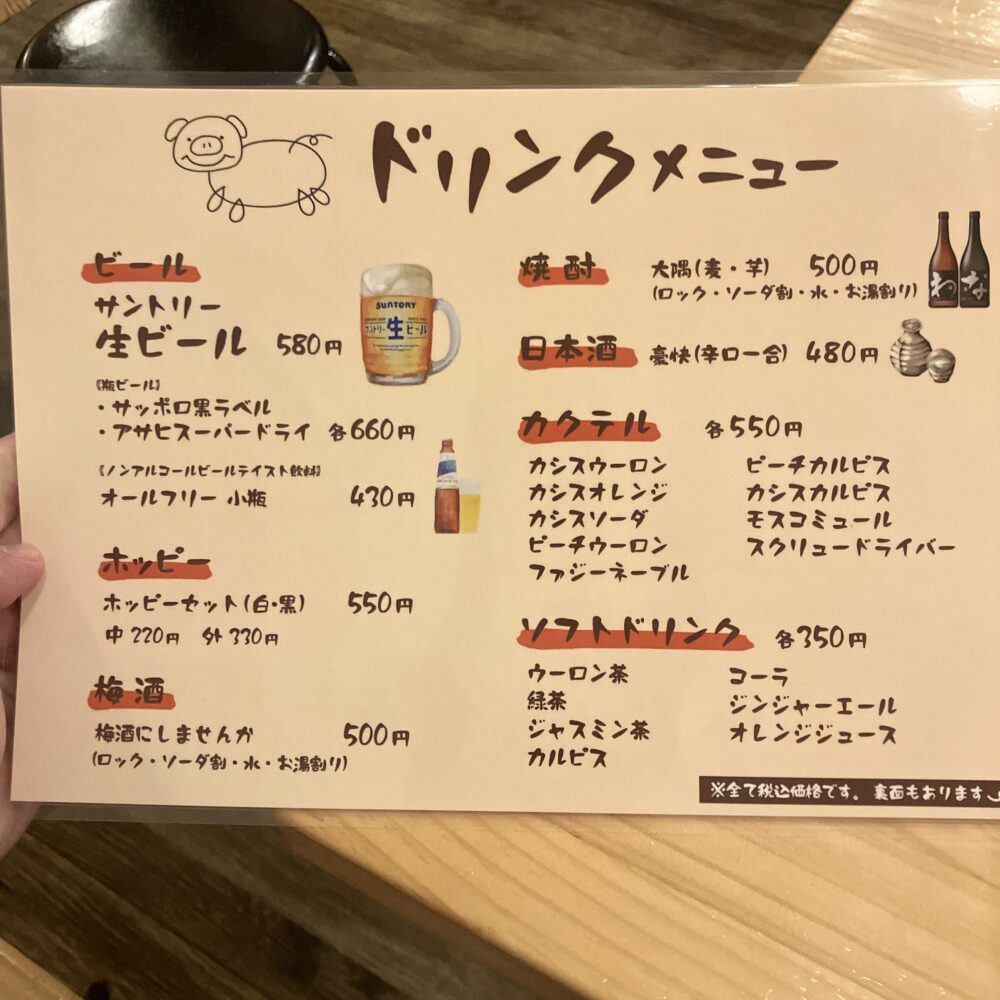 ドリンクメニュー
ビール
サントリー
生ビール 580円
SUNTORY
サントリー生ビール
《瓶ビール》
・サッポロ黒ラベル
・アサヒスーパードライ 各660円
《ノンアルコールビールテイスト飲料》
オールフリー 小瓶 430円
ホッピー
ホッピーセット(白・黒) 550円
中 220円 外 330円
梅酒
梅酒にしませんか 500円
(ロック・ソーダ割・水・お湯割り)
焼酎 大隅(麦・芋) 500円
(ロック・ソーダ割・水・お湯割り)
日本酒 豪快(辛口一合) 480円
カクテル 各550円
カシスウーロン
カシスオレンジ
カシスソーダ
ピーチウーロン
ファジーネーブル
ピーチカルピス
カシスカルピス
モスコミュール
スクリュードライバー
ソフトドリンク 各350円
ウーロン茶
緑茶
ジャスミン茶
カルピス
コーラ
ジンジャーエール
オレンジジュース
※全て税込価格です。裏面もあります